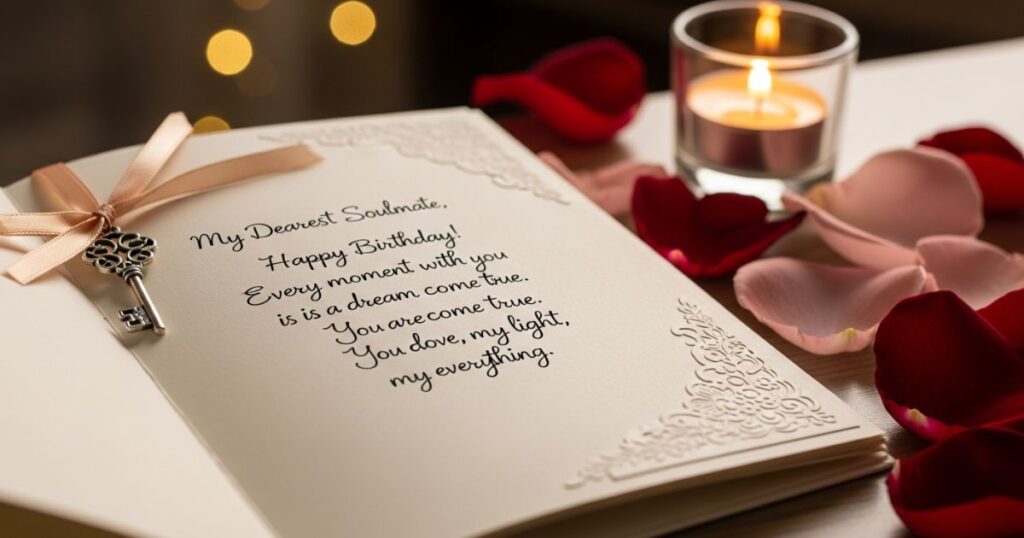 My Dearest Soulmate,
Happy Birthday!
Every moment with you
is is a dream come true.
You are come true.
You dove, my light,
my everything.